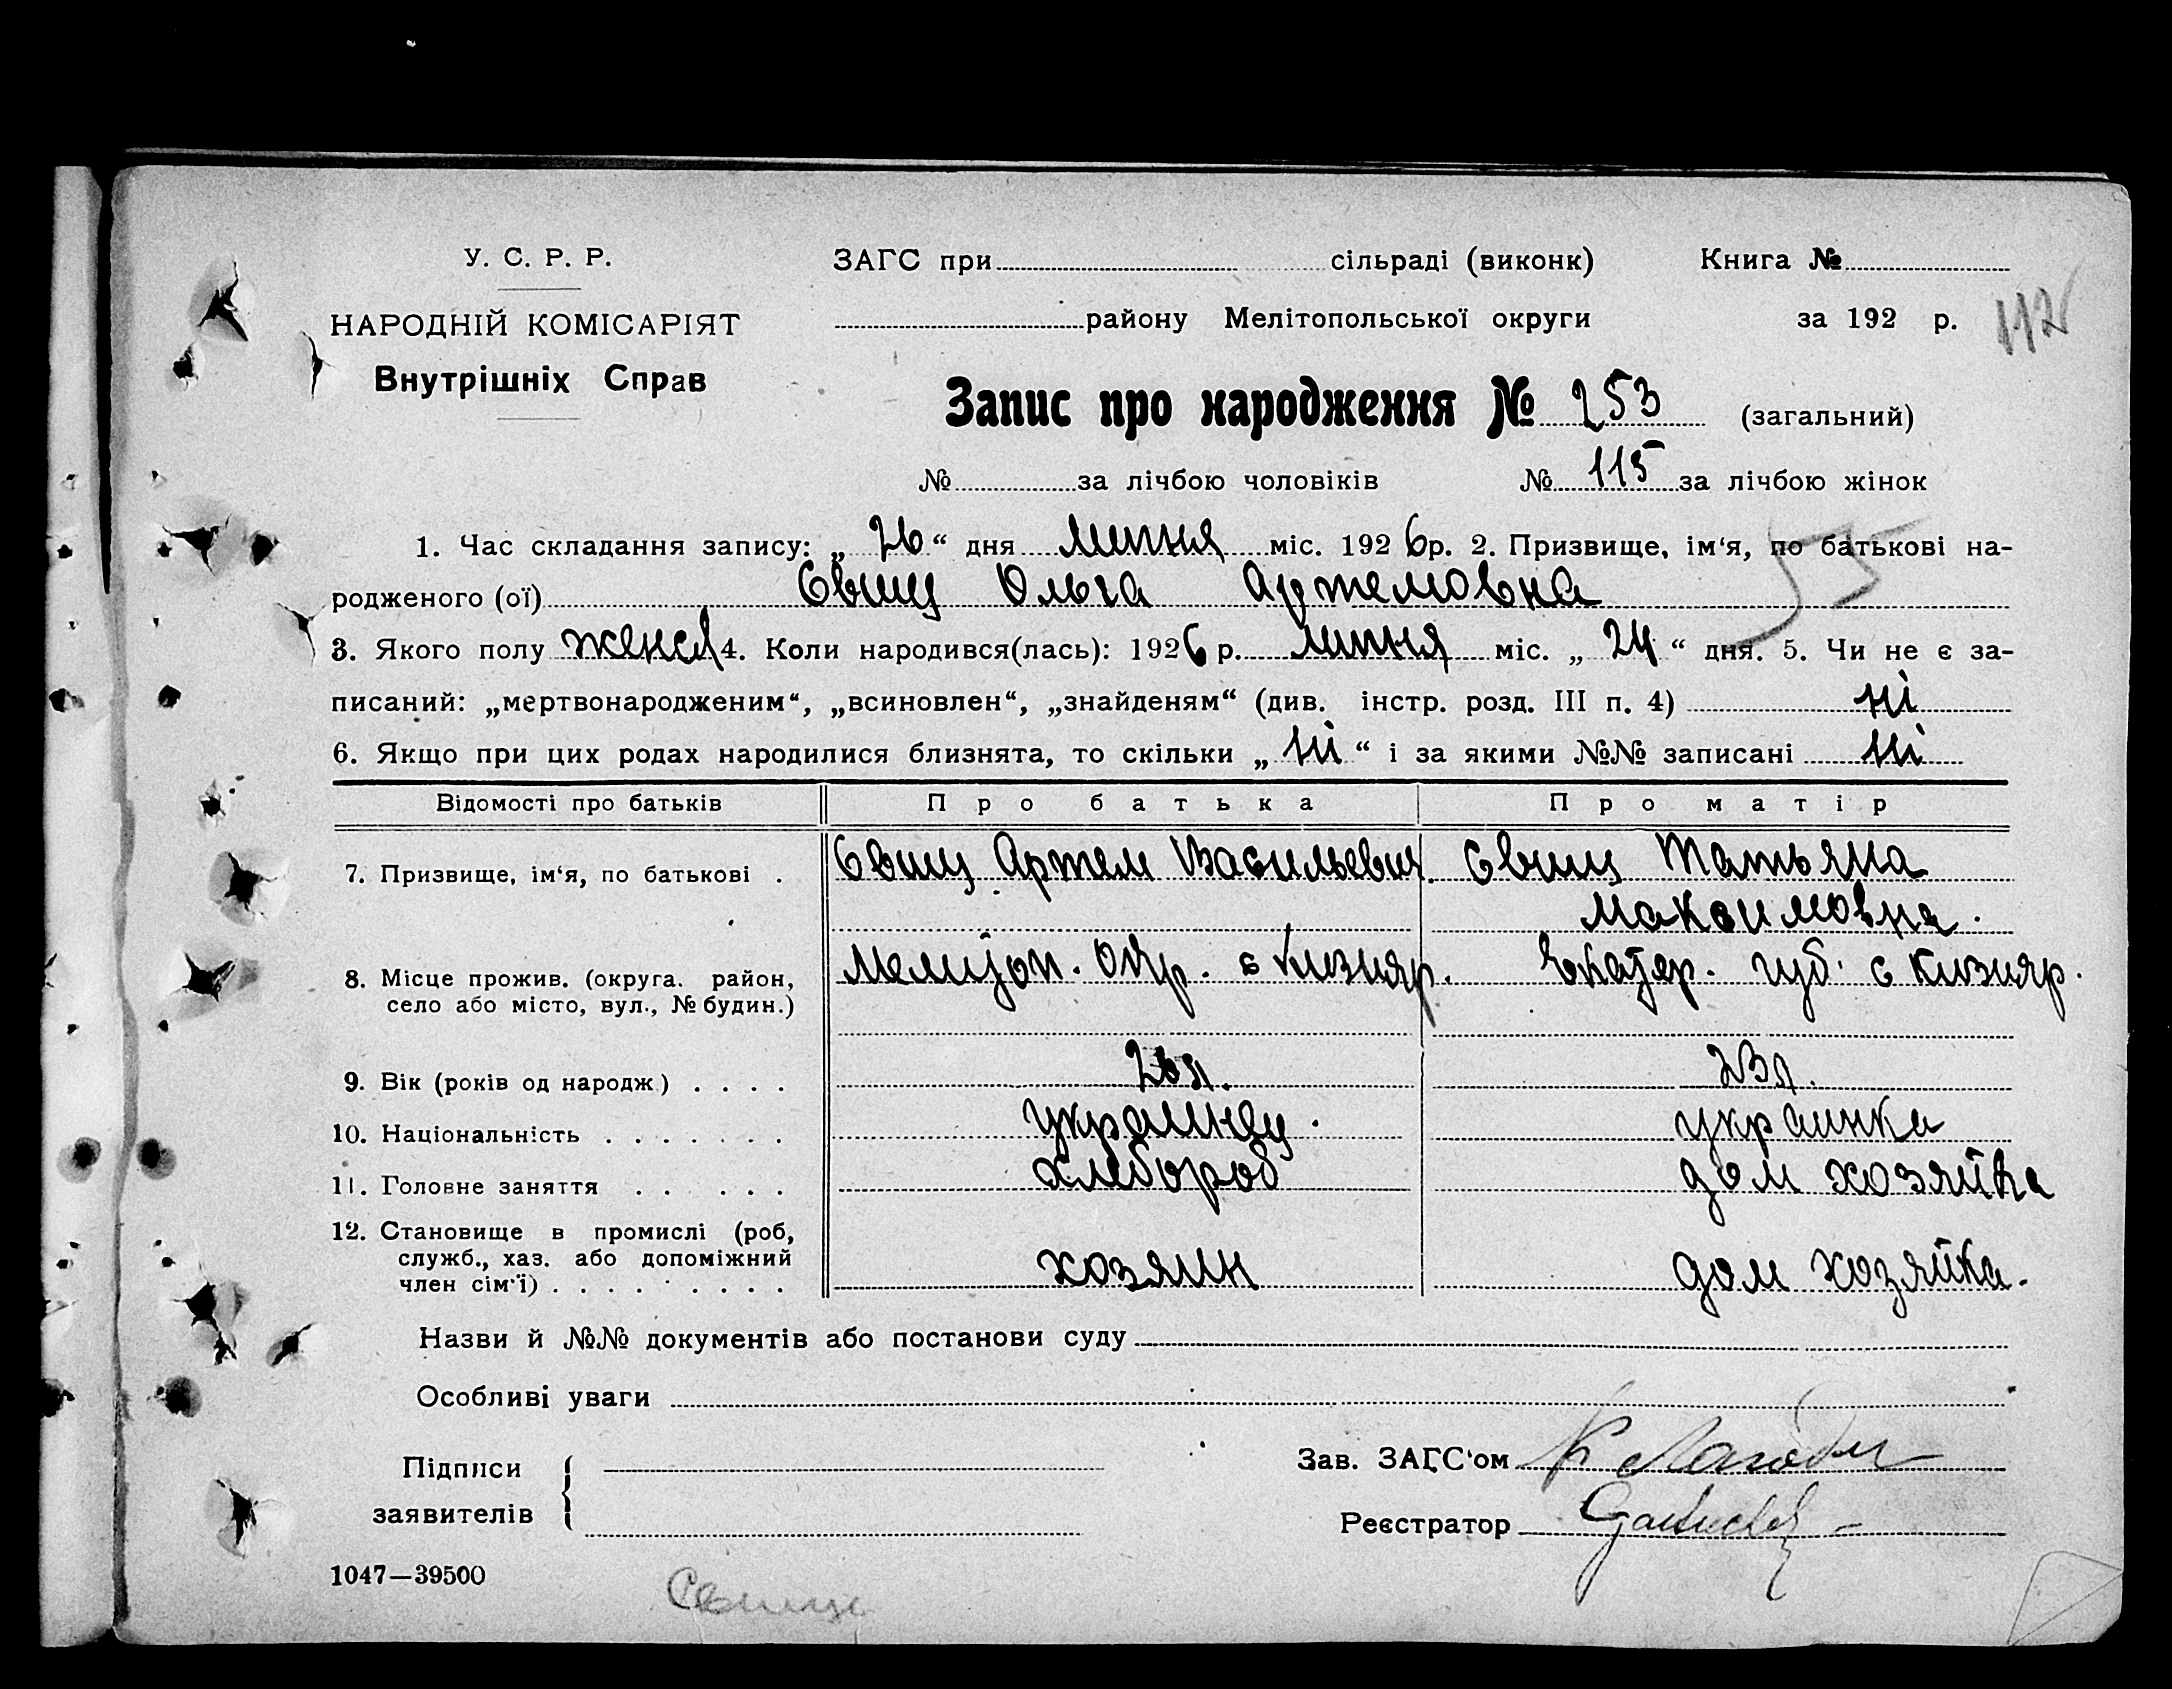 У. С. Р. Р.
НАРОДНІЙ КОМІСАРІЯТ
Внутрішніх Справ
ЗАГС при сільраді (виконк) Книга №
району Мелітопольської округи за 192 р. 112
Запис про народження № 253 (загальний)
№ за лічбою чоловіків № 115 за лічбою жінок
1. Час складання запису: „ 26 “ дня липня міс. 1926 р. 2. Призвище, ім‘я, по батькові на-
родженого (ої) Євшц Ольга Артемовна
55
3. Якого полу женск 4. Коли народився(лась): 1926 р. липня міс. „ 24 “ дня. 5. Чи не є за-
писаний: „мертвонародженим“, „всиновлен“, „знайденям“ (див. інстр. розд. III п. 4) ні
6. Якщо при цих родах народилися близнята, то скільки „ ні “ і за якими №№ записані ні
Відомості про батьків Про батька Про матір
7. Призвище, ім‘я, по батькові . Артем Васильевич. Татьяна
Максимовна.
8. Місце прожив. (округа. район, Мелітоп. Окр. с Кизияр. Екатер. губ. с Кизияр.
село або місто, вул., № будин.)
9. Вік (років од народж.) . . . . 26 л. 23 л.
10. Національність . . . . . . . украинец. украинка
11. Головне заняття . . . . . . хлебороб дом хозяйка
12. Становище в промислі (роб, хозяин дом хозяйка.
служб., хаз. або допоміжний
член сім‘ї) . . . . . . . . .
Назви й №№ документів або постанови суду
Особливі уваги
Підписи
заявителів
Зав. ЗАГС‘ом
Реєстратор
1047—39500